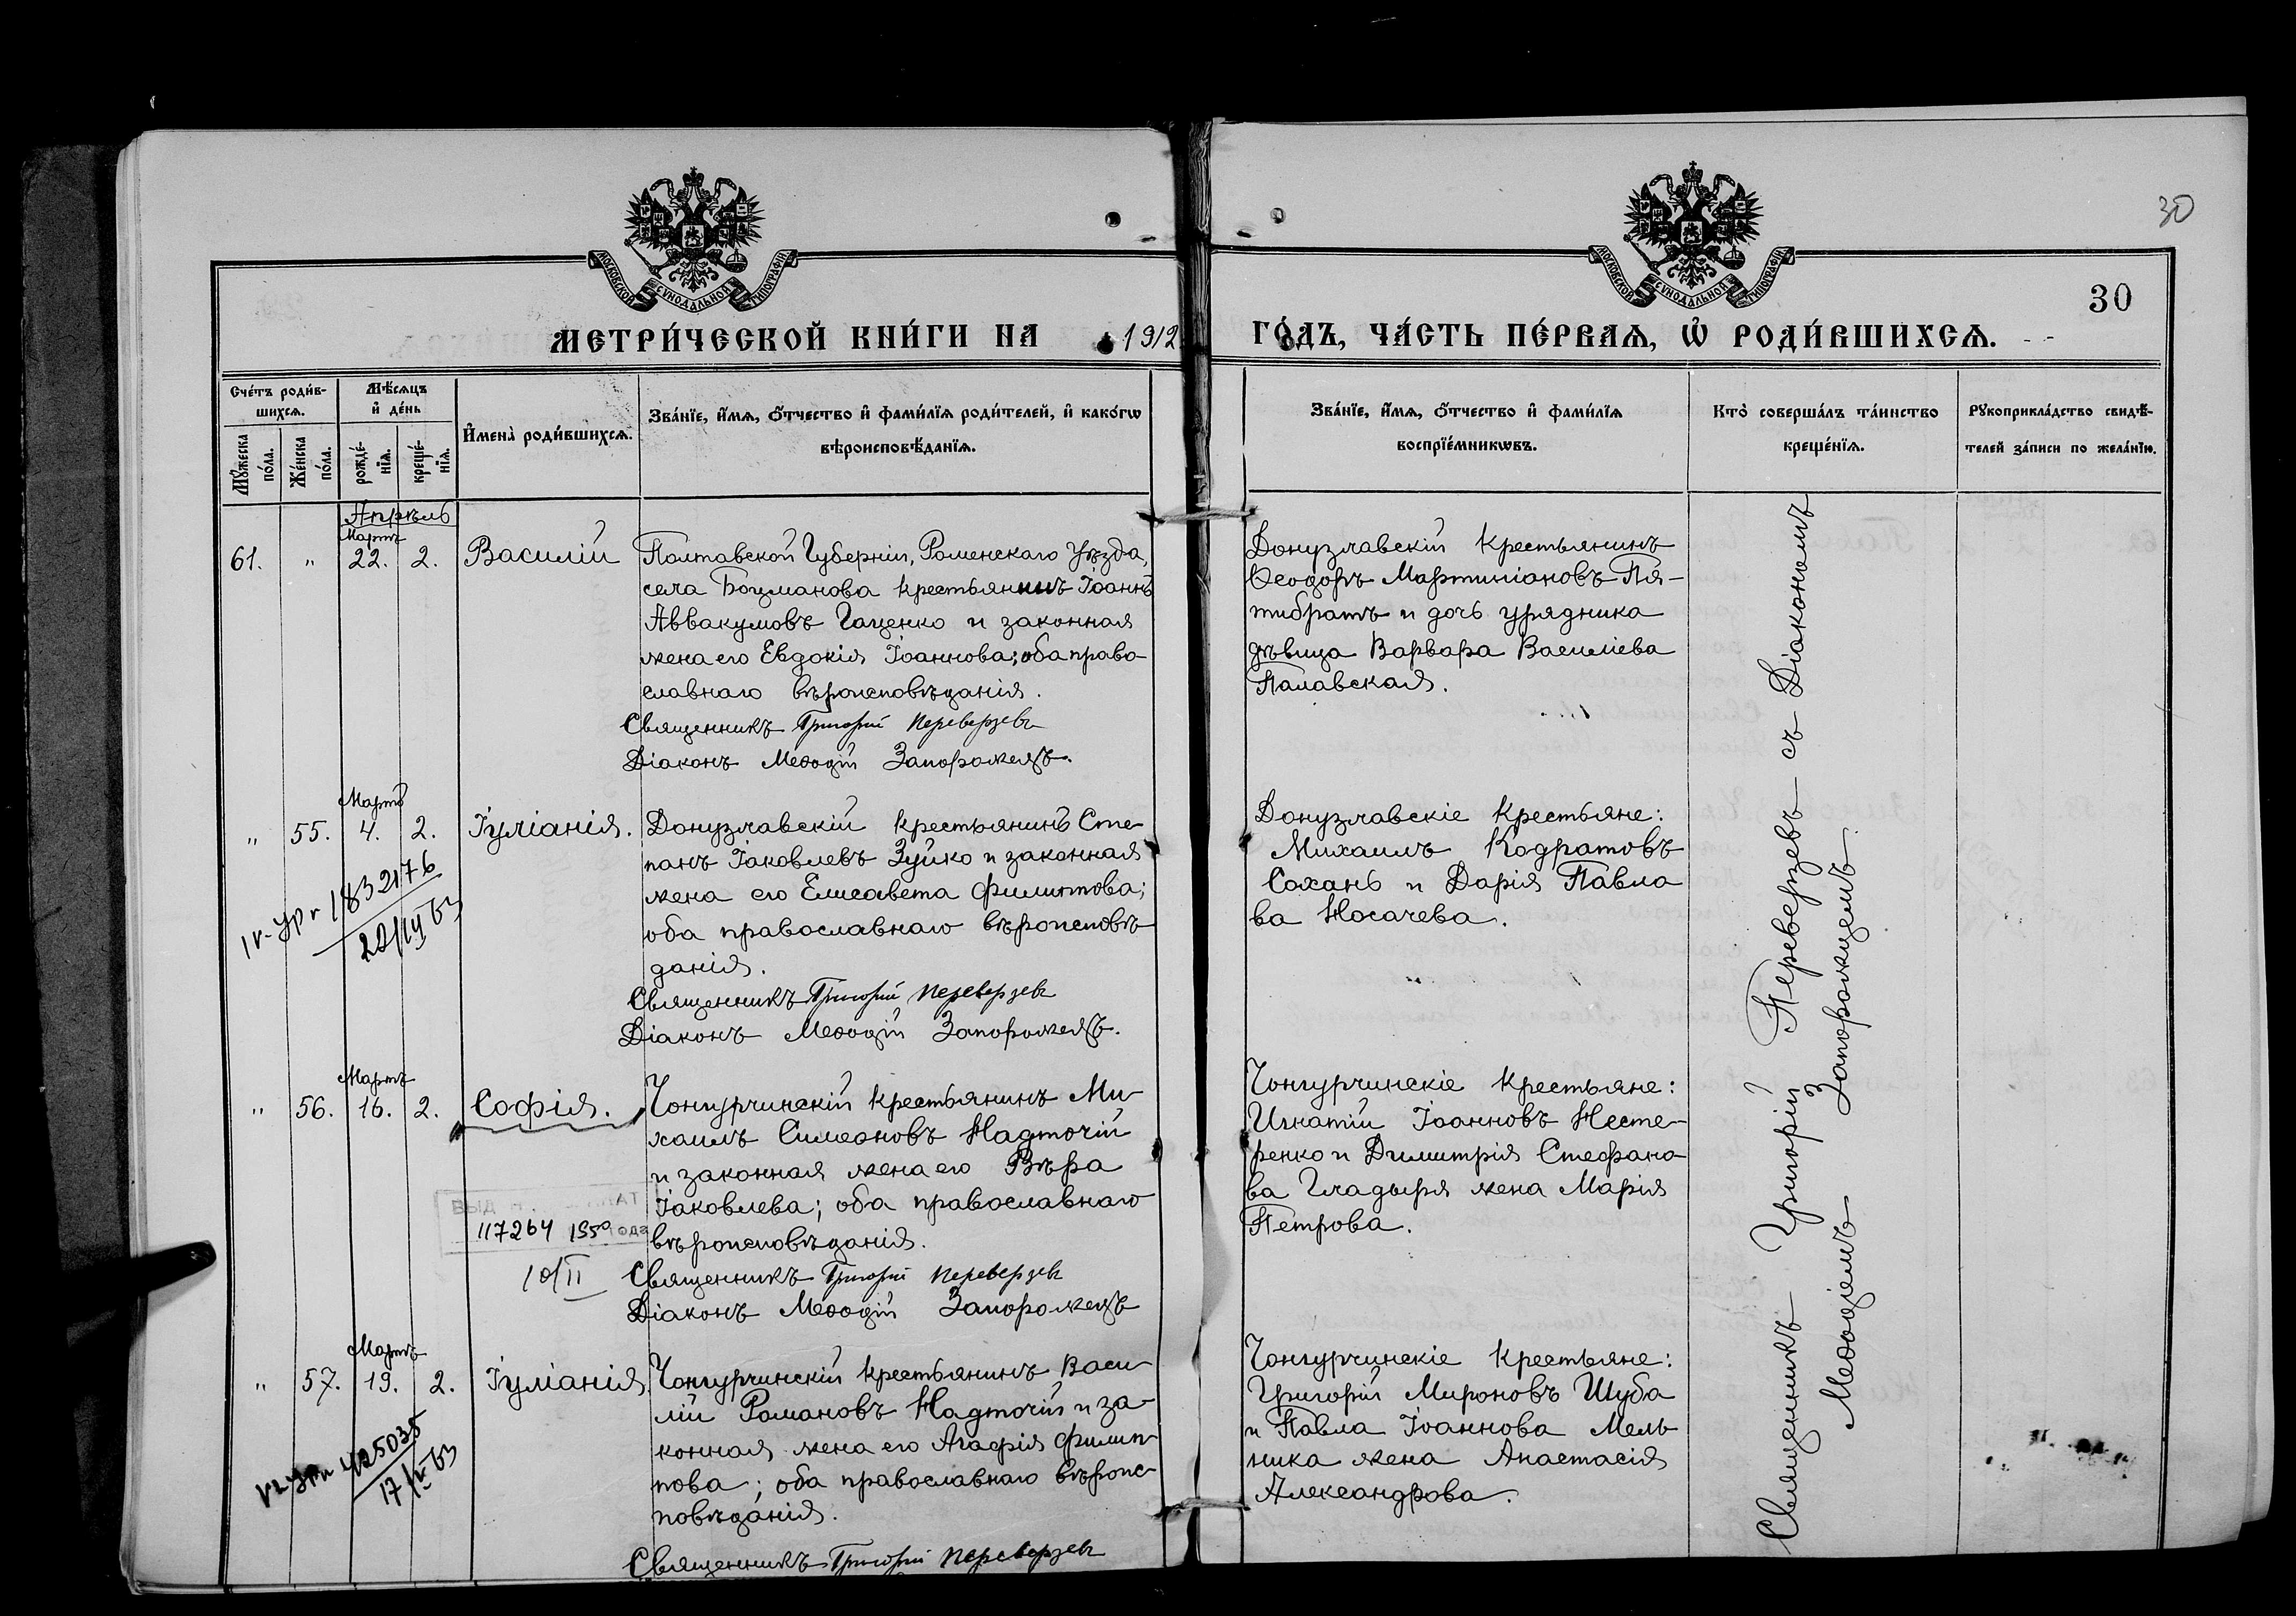 30
МОСКОВСКОЙ СѴНОДАЛЬНОЙ ТИПОГРАФІИ
МОСКОВСКОЙ СѴНОДАЛЬНОЙ ТИПОГРАФІИ
30
МЕТРИ́ЧЕСКОЙ КНИ́ГИ НА 1912 ГО́ДЪ, ЧА́СТЬ ПЕ́РВАѦ, Ѽ РОДИ́ВШИХСѦ.
Сче́тъ роди́в-
шихсѧ.
Мꙋ́жеска по́ла.
Же́нска по́ла.
Мѣ́сѧцъ
и҆ де́нь
рожде́-
нїѧ.
креще́-
нїѧ.
И҆мена̀ роди́вшихсѧ.
Зва́нїе, и҆́мѧ, о҆́тчество и҆ фами́лїѧ роди́телей, и҆ како́гѡ
вѣроисповѣ́данїѧ.
Зва́нїе, и҆́мѧ, о҆́тчество и҆ фами́лїѧ
воспрїе́мникѡвъ.
Кто̀ соверша́лъ та́инство
креще́нїѧ.
Рꙋкоприкла́дство свидѣ́-
телей за́писи по жела́нїю.
Апрѣль
Мартъ
61. " 22. 2. Василій
Полтавской Губерніи, Роменскаго Уѣзда,
села Боцманова крестьянинъ Іоаннъ
Аввакумовъ Гаценко и законная
жена его Евдокія Іоаннова; оба право-
славнаго вѣроисповѣданія.
Священникъ Григорій Переверзевъ
Діаконъ Меѳодій Запорожецъ.
Донузлавскій крестьянинъ
Ѳеодоръ Мартиніановъ Пя-
тибратъ и дочь урядника
дѣвица Варвара Василіева
Палавская.
Мартъ
" 55. 4. 2. Іуліанія.
1832176
20/IV 63
Донузлавскій крестьянинъ Сте-
панъ Іаковлевъ Зуйко и законная
жена его Елисавета Филиппова;
оба православнаго вѣроисповѣ-
данія.
Священникъ Григорій Переверзевъ
Діаконъ Меѳодій Запорожецъ.
Донузлавскіе крестьяне:
Михаилъ Кодратовъ
Сохань и Дарія Павло-
ва Носачева.
Мартъ
" 56. 16. 2. Софія.
117264 1950 года
10/II
Чонгурчинскій крестьянинъ Ми-
хаилъ Симеоновъ Надточій
и законная жена его Вѣра
Іаковлева; оба православнаго
вѣроисповѣданія.
Священникъ Григорій Переверзевъ
Діаконъ Меѳодій Запорожецъ
Чонгурчинскіе крестьяне:
Игнатій Іоанновъ Несте-
ренко и Димитрія Стефано-
ва Гладыря жена Марія
Петрова.
Мартъ
" 57. 19. 2. Іуліанія.
425035
17/IV 63
Чонгурчинскій крестьянинъ Васи-
лій Романовъ Надточій и за-
конная жена его Агафія Филип-
пова; оба православнаго вѣроис-
повѣданія.
Священникъ Григорій Переверзевъ
Чонгурчинскіе крестьяне:
Григорій Мироновъ Шуба
и Павла Іоаннова Мель-
ника жена Анастасія
Александрова.
Священникъ Григорій Переверзевъ съ Діакономъ
Меѳодіемъ Запорожцемъ.